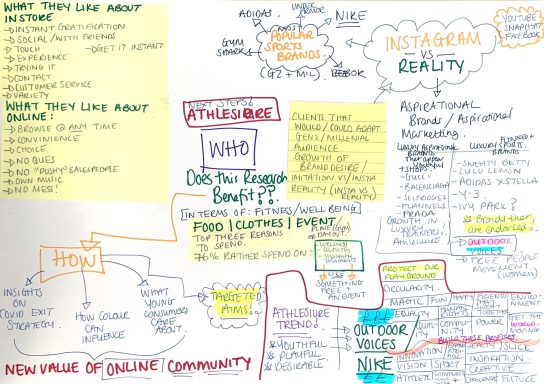 WHAT THEY LIKE ABOUT
INSTORE
→INSTANT GRATIFICATION
→SOCIAL/WITH FRIENDS
→TOUCH →GET IT INSTANT
→EXPERIENCE
→TRYING IT
→CONTACT
→CUSTOMER SERVICE
→VARIETY
WHAT THEY LIKE ABOUT
ONLINE:
→BROWSE @ ANY TIME
→CONVINIENCE
→CHOICE
→NO QUES
→NO "PUSHY" SALESPEOPLE
→OWN MUSIC
→NO MESS!
ADIDAS
UNDER
ARMOR
NIKE
GYM
SHARK
POPULAR
SPORTS
BRANDS
(GZ + MIL)
INSTAGRAM
VS
REALITY
YOUTUBE
SNAPCHAT
FACEBOOK
NEXT STEPS:
ATHLESIARE
WHO
Does this Research
Benefit??
CLIENTS THAT
WOULD/COULD ADAPT
GENZ/MILLENIAL
AUDIENCE
GROWTH OF
BRAND DESIRE/
INITIATION VS/INSTA
REALITY (INSTA VS)
REALITY
IN TERMS OF: FITNESS/WELLBEING
FOOD | CLOTHES | EVENT/
PLACE (GYM)
OR DAY OUT
TOP THREE REASONS
TO SPEND.
76% RATHER SPEND ON:
LIKE
SOMETHING
FREE +
AN EVENT
ASPIRATIONAL
Brands/Aspirational
Marketing.
LUXURY ASPIRATIONAL
BRANDS
THAT APPEAR
+SHOPS:
-GUCCI
-BALENCIAGA
-SELFRIDGES
-FLANNELS
PRADA
GROWTH IN
LUXURY
Athleisure
LUXURY SPORTS
BRANDS
-SWEATY BETTY
-LULU LEMON
-ADIDAS X STELLA
-Y-3
-IVY PARK?
Brands that
are endorsed.
OUTDOOR
VOICES
→FREE PEOPLE
MOVEMENT
(women)
HOW
INSIGHTS
ON
COVID EXIT
STRATEGY.
HOW COLOUR
CAN
INFLUENCE
WHAT
YOUNG
CONSUMERS
CARE ABOUT
TARGETED
AIMS!
NEW VALUE OF ONLINE COMMUNITY
ATHLESIURE
TREND!
*YOUTHFUL
*PLAYFUL
*DESIRABLE
OUTDOOR
VOICES
NIKE
PROTECT OUR
PLAYGROUND
CIRCULARITY
MAGIC
FUN
ENVIRO-
NMENT
EQUALITY
COMMUNITY
POWER
GET THE
WORLD
MOVING
INNOVATION
SPORT
INSPIRATION
CREATIVE
ATHLETE